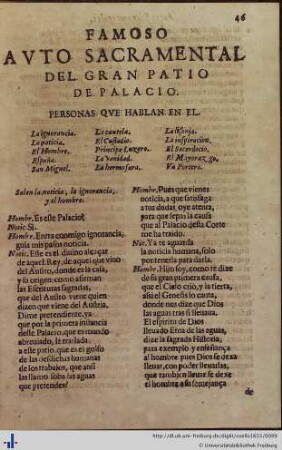 46
FAMOSO
AVTO SACRAMENTAL
DEL GRAN PATIO
DE PALACIO.
PERSONAS QVE HABLAN EN EL.
La ignorancia. La cautela. La lisonja.
La noticia. El Custodio. La inspiracion.
El Hombre. Principe Luzero. El Sacerdocio.
España. La vanidad. El Mayorazgo.
San Miguel. La hermosura. Vn Portero.
Salen la noticia, la ignorancia,
y el hombre.
Hombr. Es este Palacio?
Notic. Si.
Hombr. Entra conmigo ignorancia,
guia mis passos noticia.
Notic. Este es el diuino alcaçar
de aquel Rey, de aquel que vino
del Austro, donde es la caía,
y su origen como afirman
las Escrituras sagradas,
que del Austro viene quien
dizen que viene del Austria,
Dime pretendiente, ya
que por la primera instancia
deste Palacio, que en mundo
abreuiado, le traslada
a este patio, que es el golfo
de las desdichas humanas
de los trabajos, que ansi
las llamo sobre las aguas
que pretendes?
Hombr. Pues que vienes
noticia, a que satisfaga
a tus dudas, oye atenta,
para que sepas la causa
que al Palacio desta Corte
me ha traido.
Not. Ya te aguarda
la noticia humana, solo
por tenerla para darla.
Hombr. Hijo soy, como te dixe
de su gran primera causa,
que el Cielo crió, y la tierra,
assi el Genesis lo canta,
donde nos dize que Dios
las aguas tras si lleuaua.
El espiritu de Dios
lleuado era de las aguas,
dize la sagrada Historia,
para exemplo, y enseñança
al hombre pues Dios se dexa
lleuar, con poder lleuarlas,
que tambien lleuar se dexe
el hombre a su semejança
de
http://dl.ub.uni-freiburg.de/diglit/autos1655/0099
© Universitätsbibliothek Freiburg